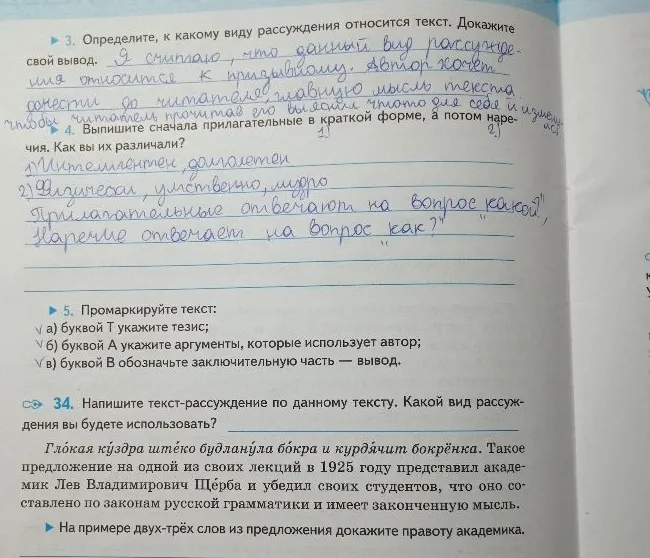 ▶ 3. Определите, к какому виду рассуждения относится текст. Докажите
свой вывод. Я считаю, что данный вид рассужде-
ния относится к призывному. Автор хочет
донести до читателя главную мысль текста
чтобы читатель прочитав его выяснил чтото для себя и измени
лся
▶ 4. Выпишите сначала прилагательные в краткой форме, а потом наре-
1) 2)
чия. Как вы их различали?
1) Интелигентен, долголетен
2) Физически, умственно, мудро
Прилагательные отвечают на вопрос "какой?",
Наречие отвечает на вопрос "как?"
▶ 5. Промаркируйте текст:
√ а) буквой Т укажите тезис;
√ б) буквой А укажите аргументы, которые использует автор;
√ в) буквой В обозначьте заключительную часть — вывод.
34. Напишите текст-рассуждение по данному тексту. Какой вид рассуж-
дения вы будете использовать?
Гло́кая ку́здра ште́ко будлану́ла бо́кра и курдя́чит бокрёнка. Такое
предложение на одной из своих лекций в 1925 году представил акаде-
мик Лев Владимирович Ще́рба и убедил своих студентов, что оно со-
ставлено по законам русской грамматики и имеет законченную мысль.
▶ На примере двух-трёх слов из предложения докажите правоту академика.